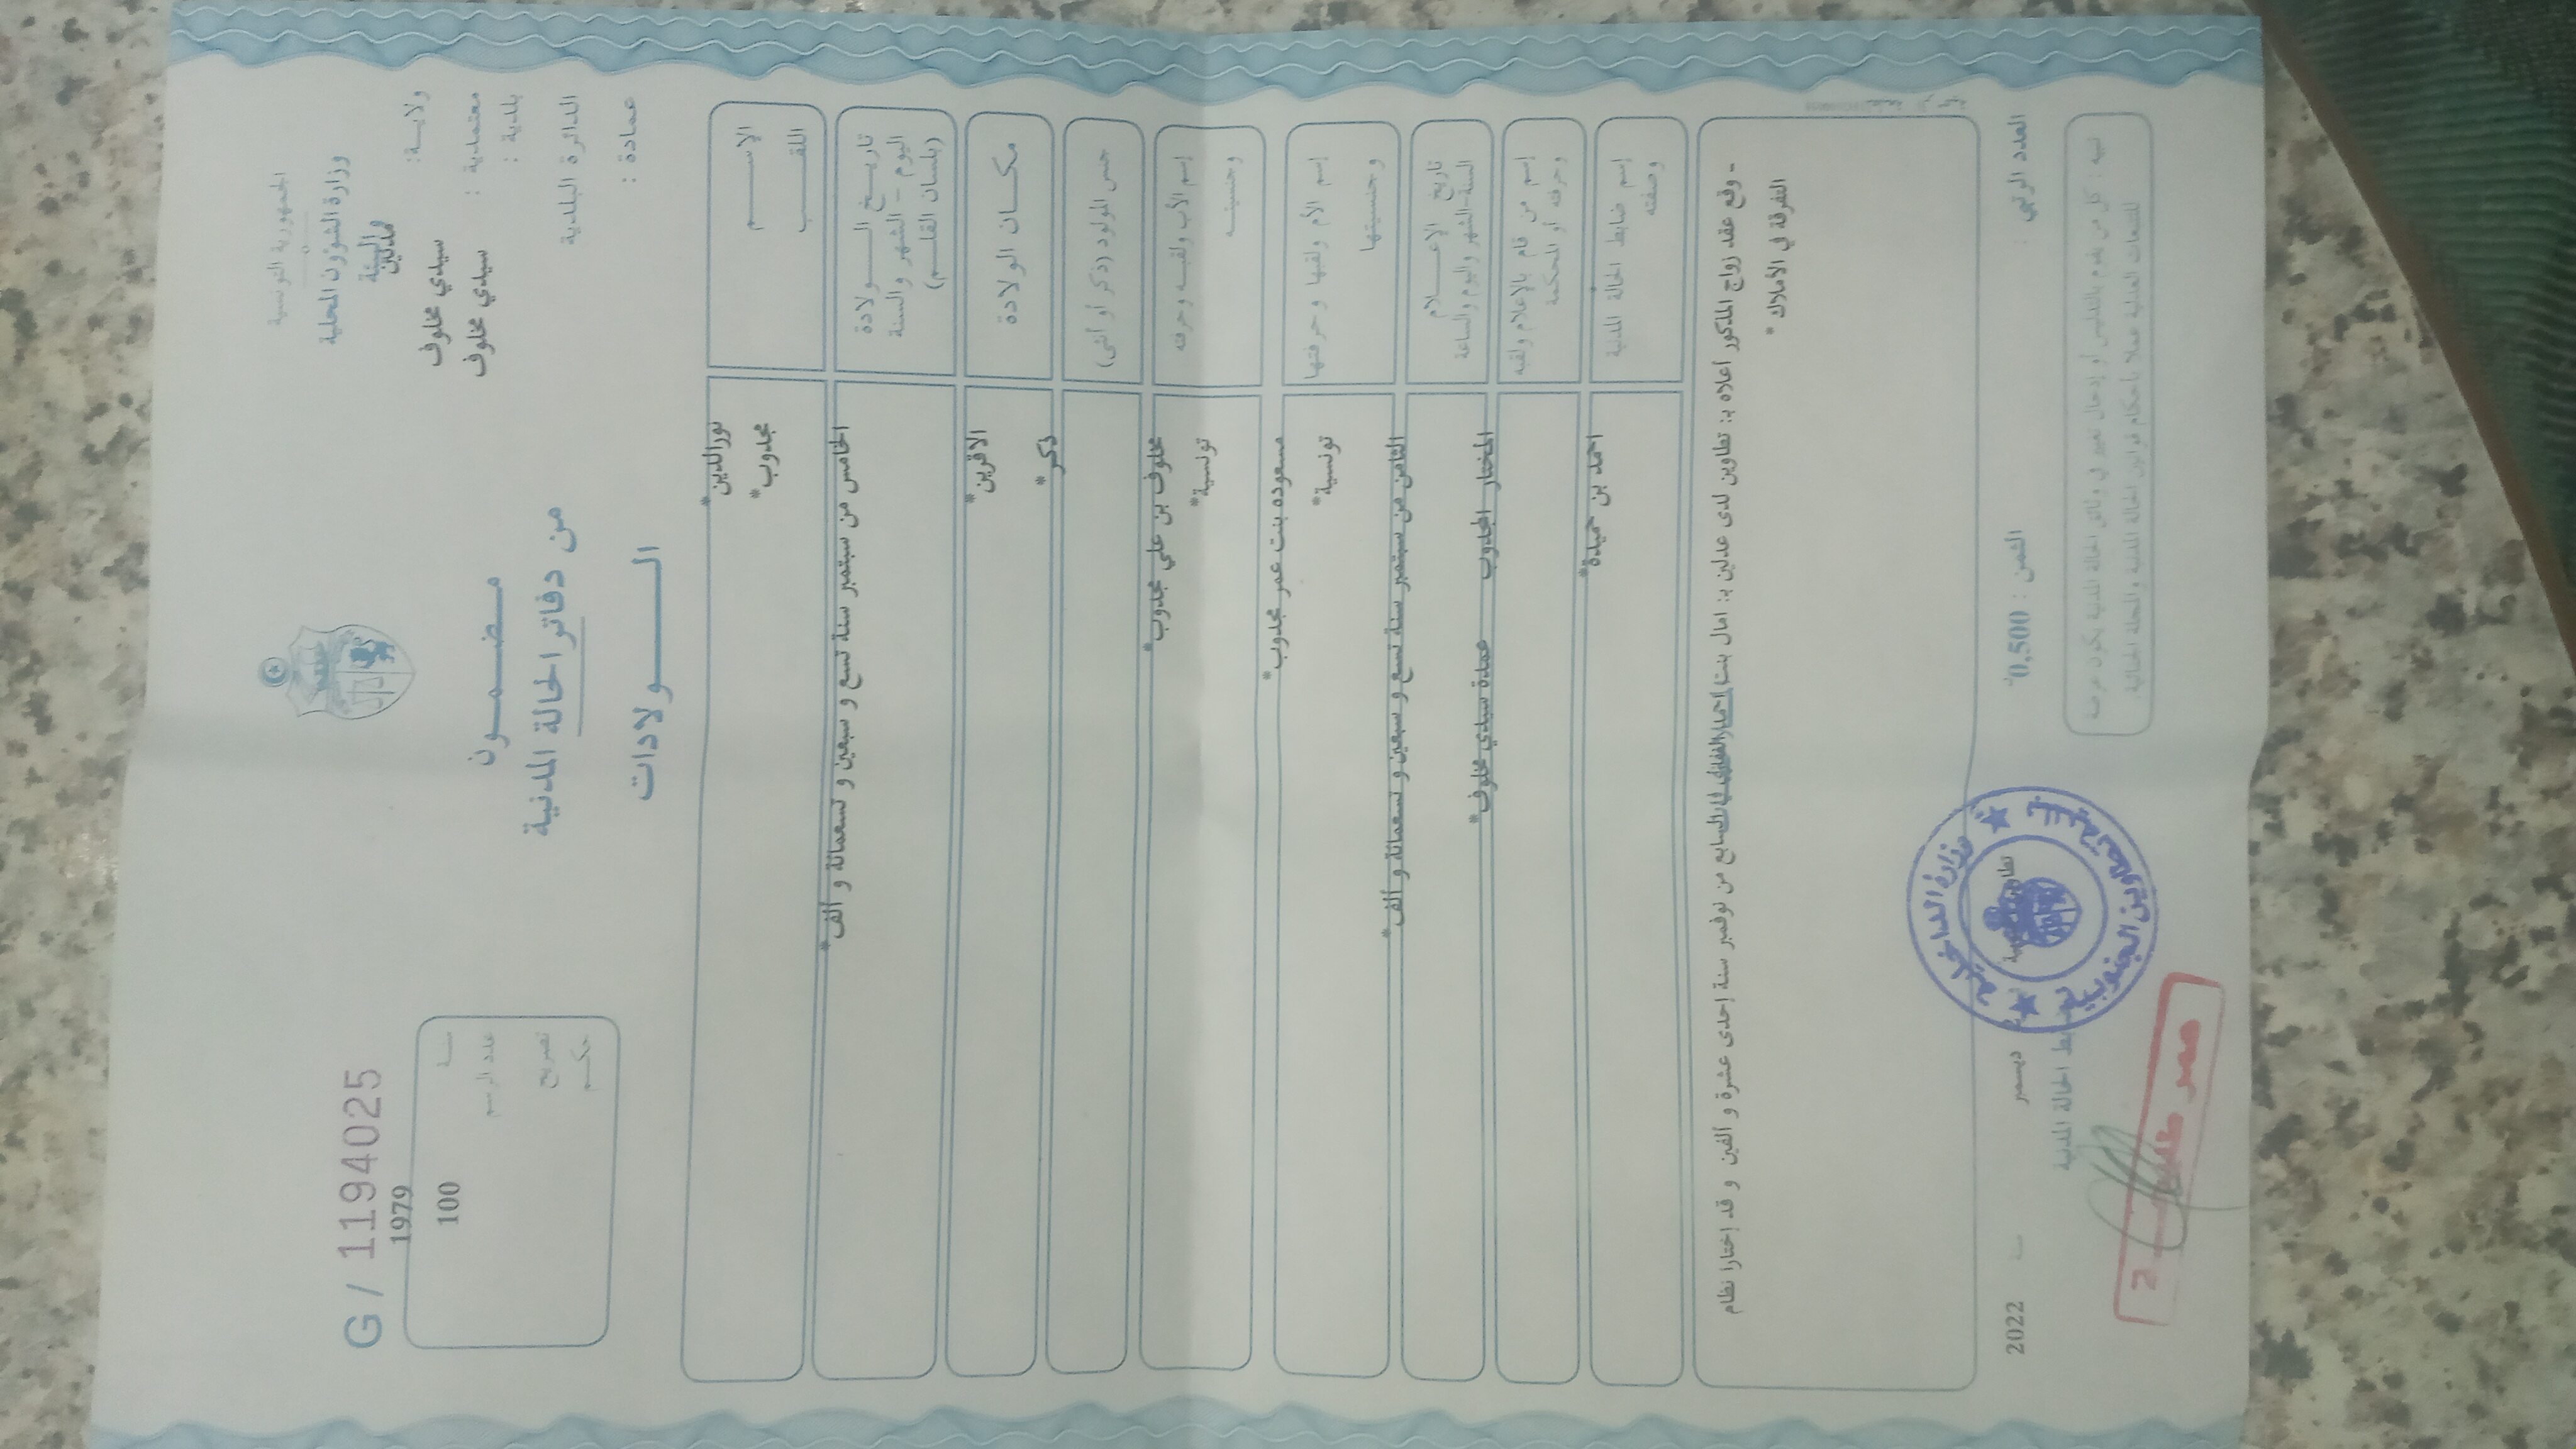 الجمهورية التونسية
وزارة الشؤون المحلية
والبيئة
ولاية: مدنين
معتمدية : سيدي مخلوف
بلدية : سيدي مخلوف
الدائرة البلدية
عمادة :
مضمون
من دفاتر الحالة المدنية
الولادات
G / 1194025
1979
سنة
100
عدد الرسم
تصريح
حكم
الإسم
نورالدين*
اللقب
مجدوب*
تاريخ الولادة
اليوم - الشهر والسنة
(بلسان القلم)
الخامس من سبتمبر سنة تسع و سبعين و تسعمائة و ألف*
مكان الولادة
الاقرين*
جنس المولود (ذكر أو أنثى)
ذكر*
إسم الأب ولقبه وحرفته
وجنسيته
مخلوف بن علي مجدوب*
تونسية*
إسم الأم ولقبها وحرفتها
وجنسيتها
مسعوده بنت عمر مجدوب*
تونسية*
تاريخ الإعلام
السنة-الشهر واليوم والساعة
الثامن من سبتمبر سنة تسع و سبعين و تسعمائة و ألف*
إسم من قام بالإعلام ولقبه
وحرفته أو المحكمة
المختار المجدوب عمدة سيدي مخلوف*
إسم ضابط الحالة المدنية
وصفته
احمد بن حميدة*
- وقع عقد زواج المذكور أعلاه بـ: تطاوين لدى عدلين بـ: امال بنت السابع من نوفمبر سنة إحدى عشرة و ألفين و قد إختارا نظام
التفرقة في الأملاك *
العدد الرتبي :
الثمن : 0,500
ديسمبر
سنة 2022
ضابط الحالة المدنية
تنبيه : كل من يقوم بالتدليس أو إدخال تغيير في وثائق الحالة المدنية يكون عرضة
للتتبعات العدلية عملا بأحكام قوانين الحالة المدنية والمجلة الجنائية.
وزارة الداخلية
تطاوين الجنوبية